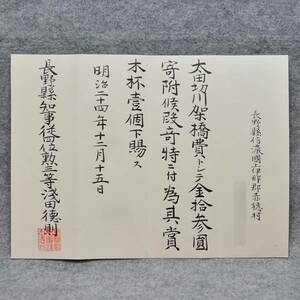 長野縣信濃國上伊那郡赤穂村
太田切川架橋費トシテ金拾参圓
寄附候段奇特ニ付為其賞
木杯壹個下賜ス
明治二十四年十二月十五日
長野縣知事従四位勲三等浅田徳則